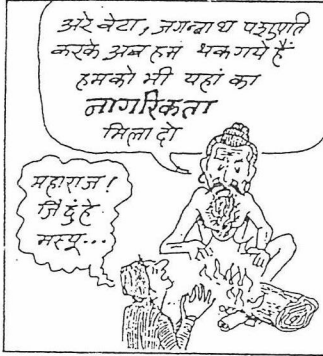 अरे बेटा, जगन्नाथ पशुपति
करके अब हम थक गये हैं
हमको भी यहां का
नागरिकता
मिला दो
महाराज!
जिँदुहे
मस्यू...